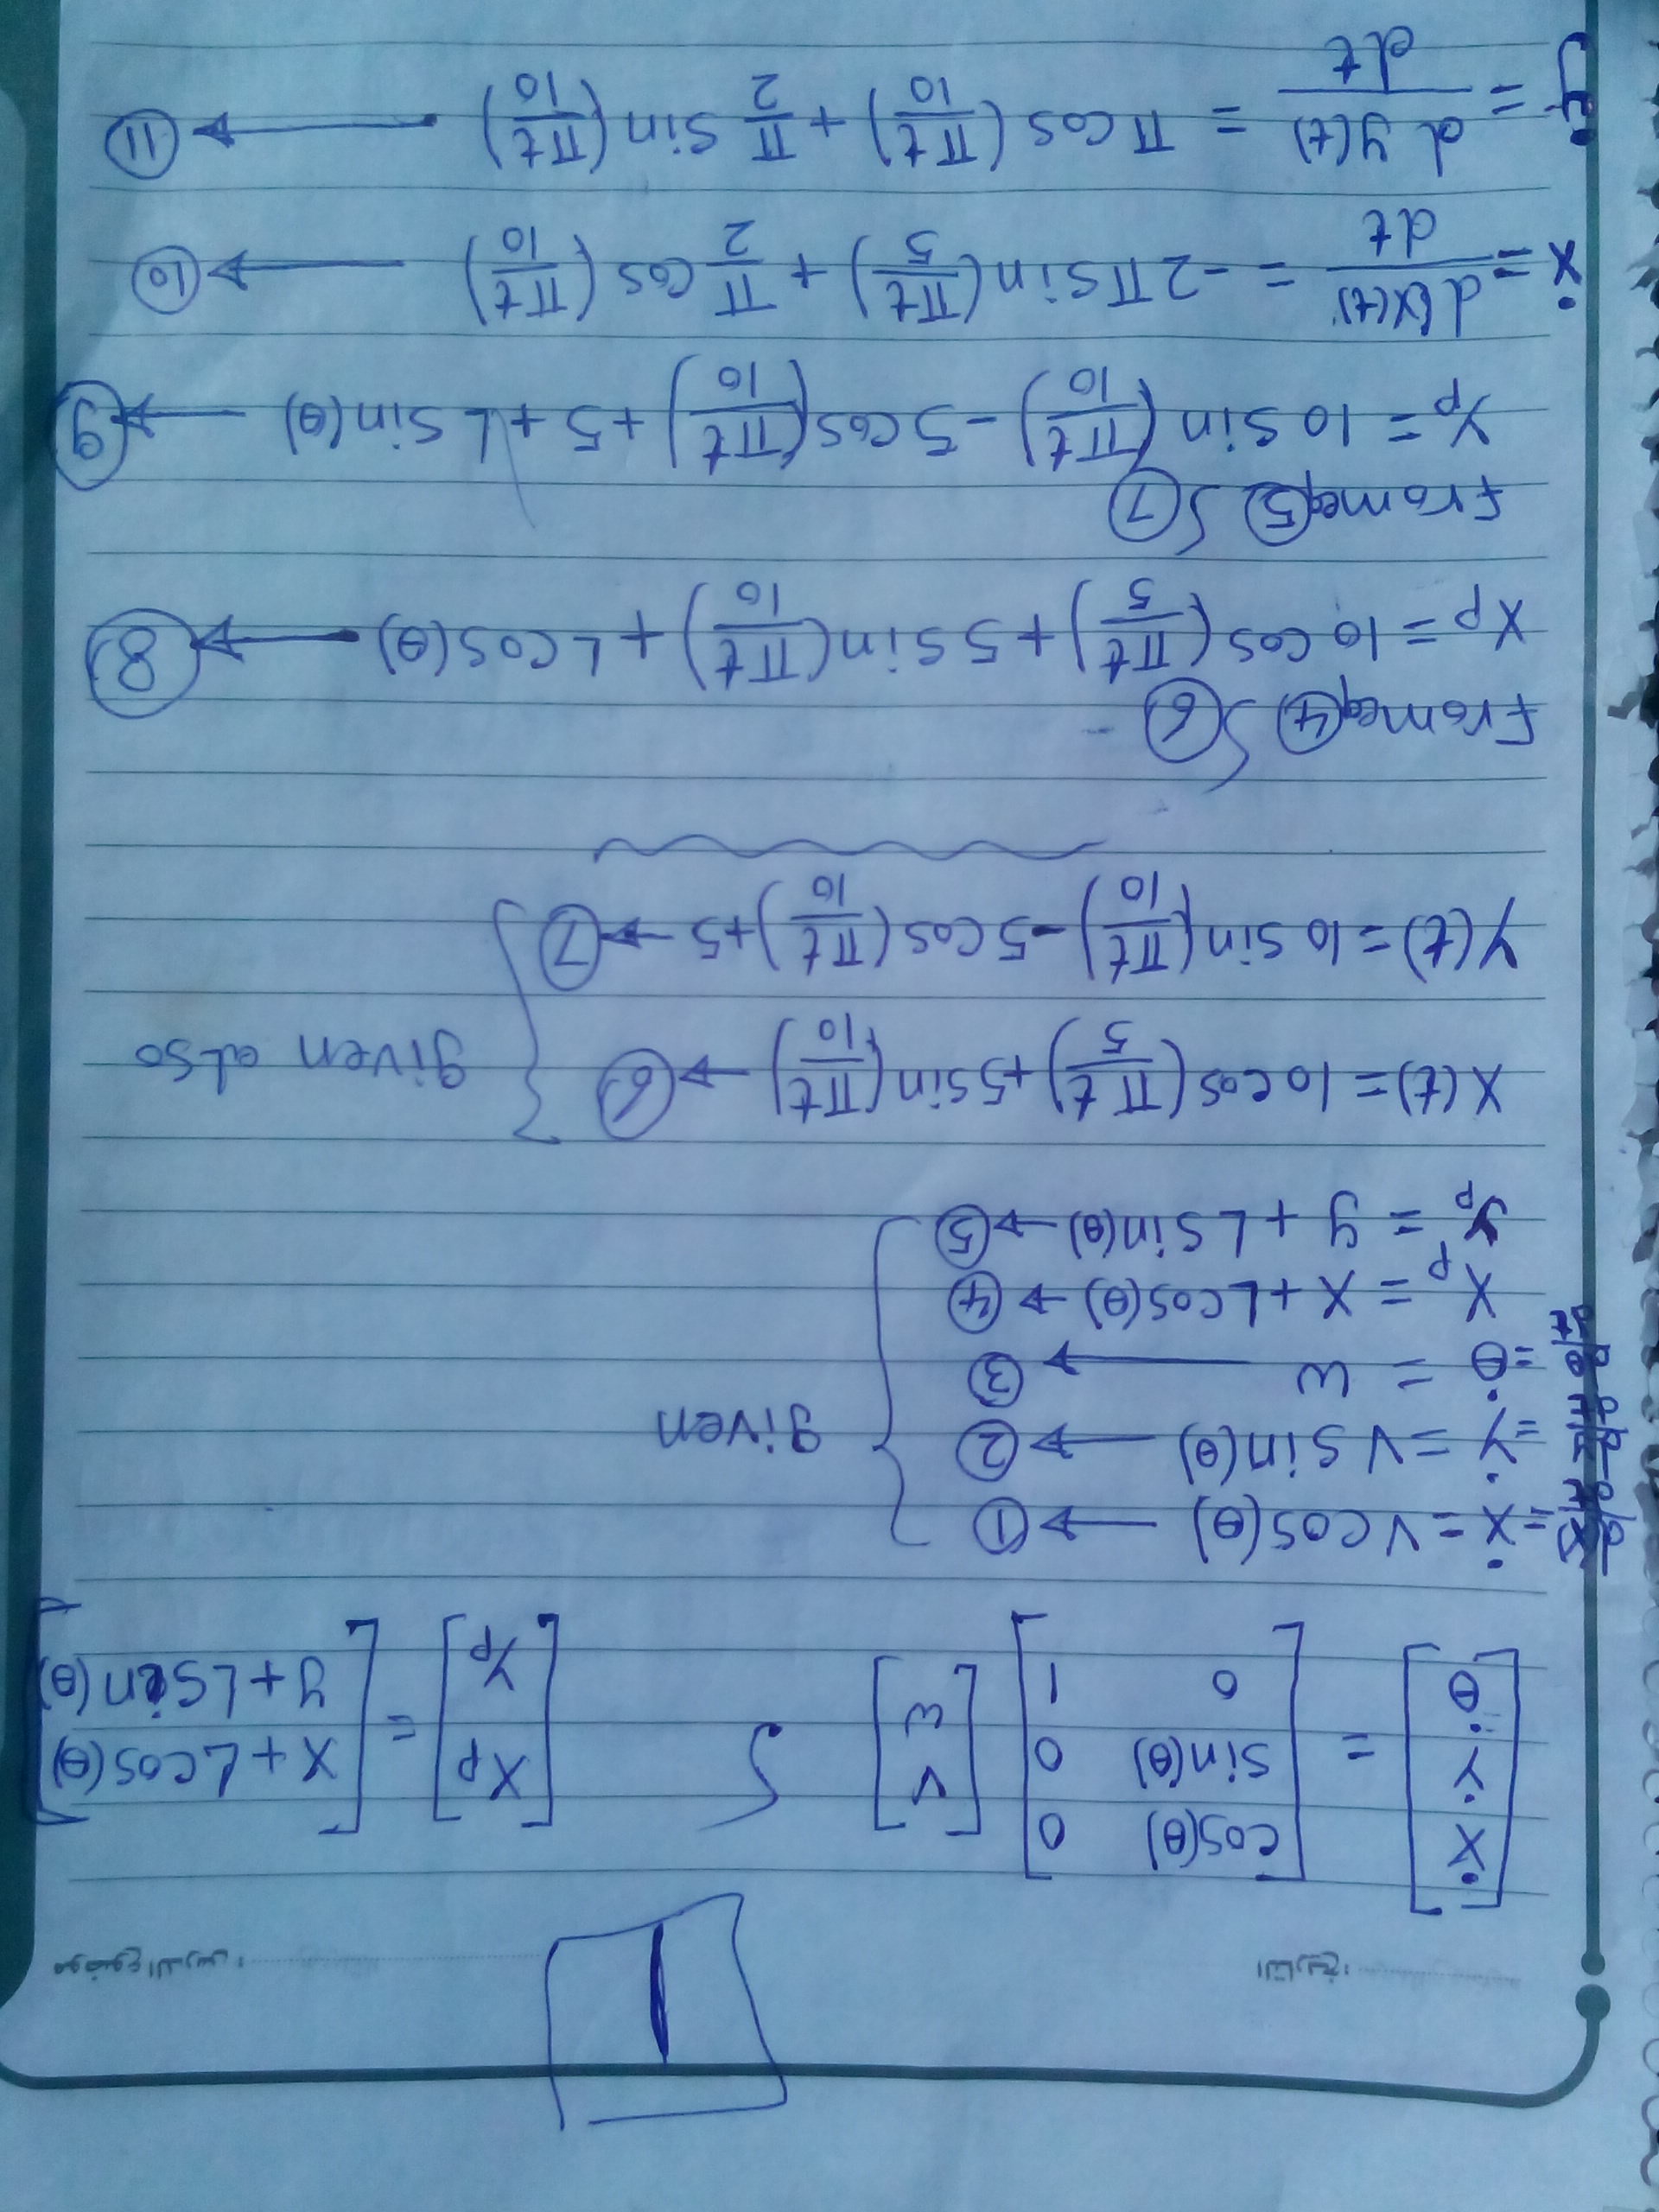 1
موضوع الدرس :
التاريخ:
[Ẋ Ẏ θ̇] = [cos(θ) 0 sin(θ) 0 0 1] [V ω] [Xp Yp] = [X + L cos(θ) y + L sin(θ)]
dx/dt = Ẋ = V cos(θ) → ①
dy/dt = Ẏ = V sin(θ) → ②
given
dθ/dt = θ̇ = ω → ③
Xp = X + L cos(θ) → ④
yp = y + L sin(θ) → ⑤
X(t) = 10 cos(πt/5) + 5 sin(πt/10) → ⑥
given also
Y(t) = 10 sin(πt/10) - 5 cos(πt/10) + 5 → ⑦
From eq ④ ⑥
Xp = 10 cos(πt/5) + 5 sin(πt/10) + L cos(θ) → ⑧
From eq ⑤ ⑦
Yp = 10 sin(πt/10) - 5 cos(πt/10) + 5 + L sin(θ) → ⑨
ẋ = d(x(t))/dt = -2π sin(πt/5) + π/2 cos(πt/10) → ⑩
ẏ = d y(t)/dt = π cos(πt/10) + π/2 sin(πt/10) → ⑪